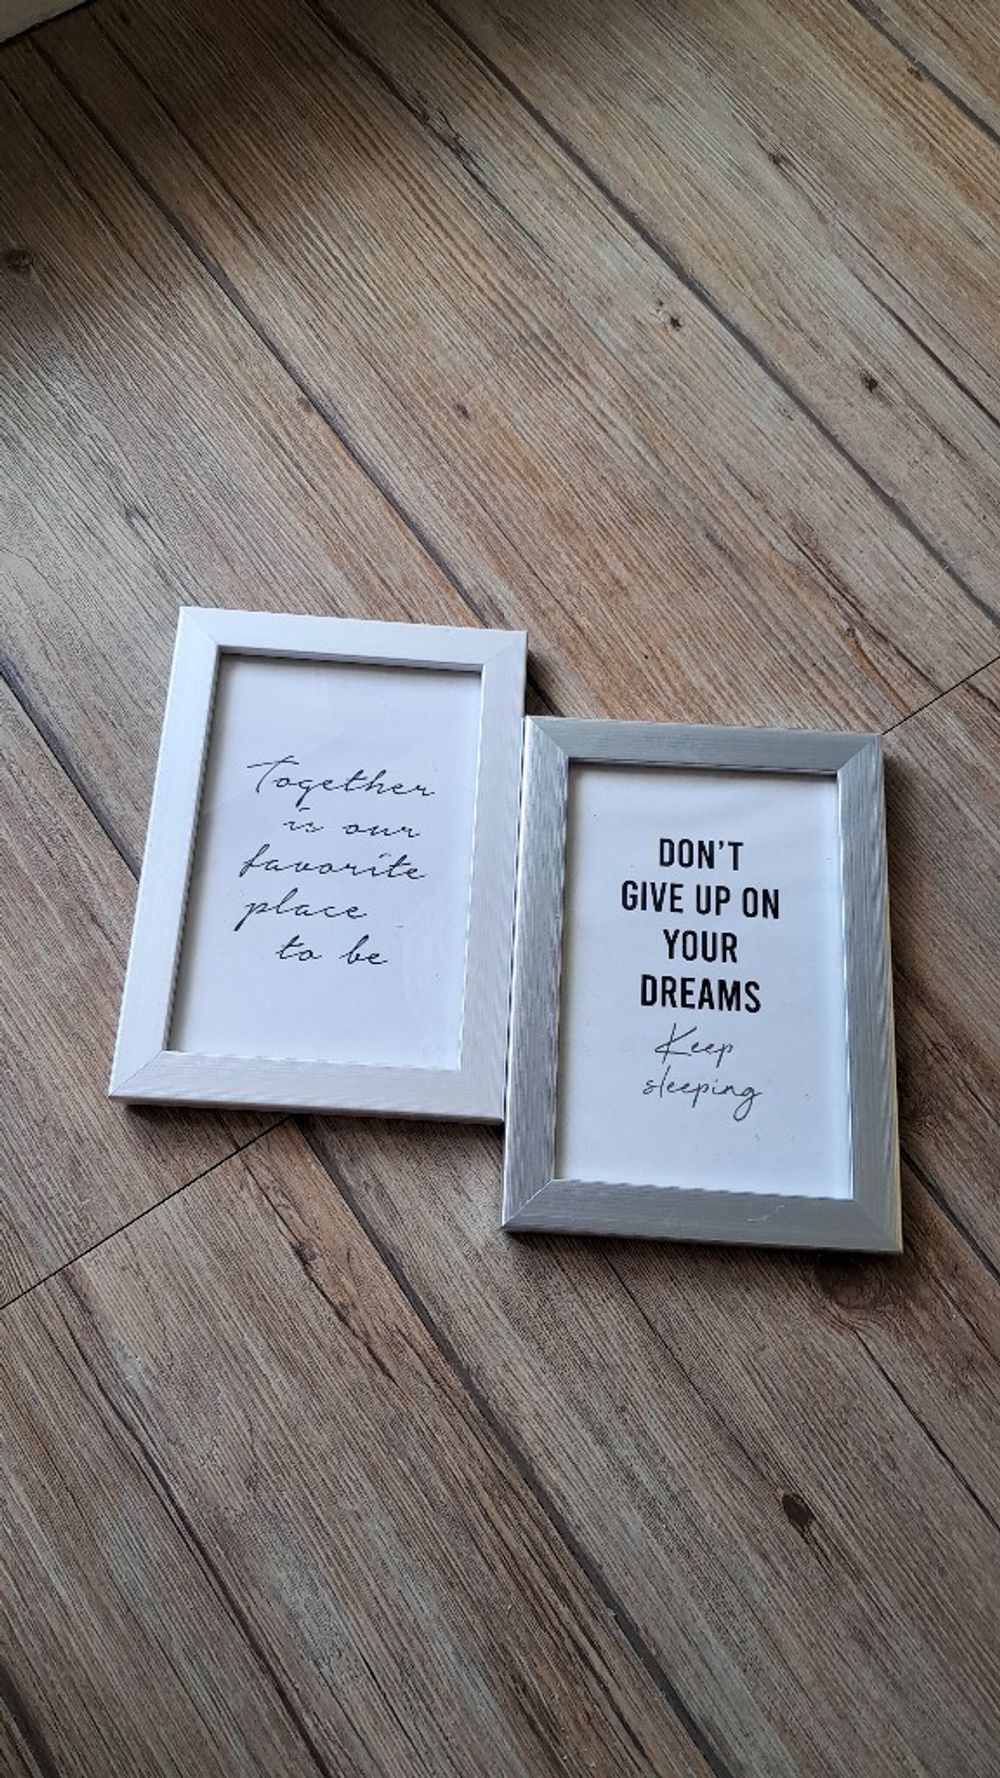 Together
is our
favorite
place
to be
DON'T
GIVE UP ON
YOUR
DREAMS
Keep
sleeping